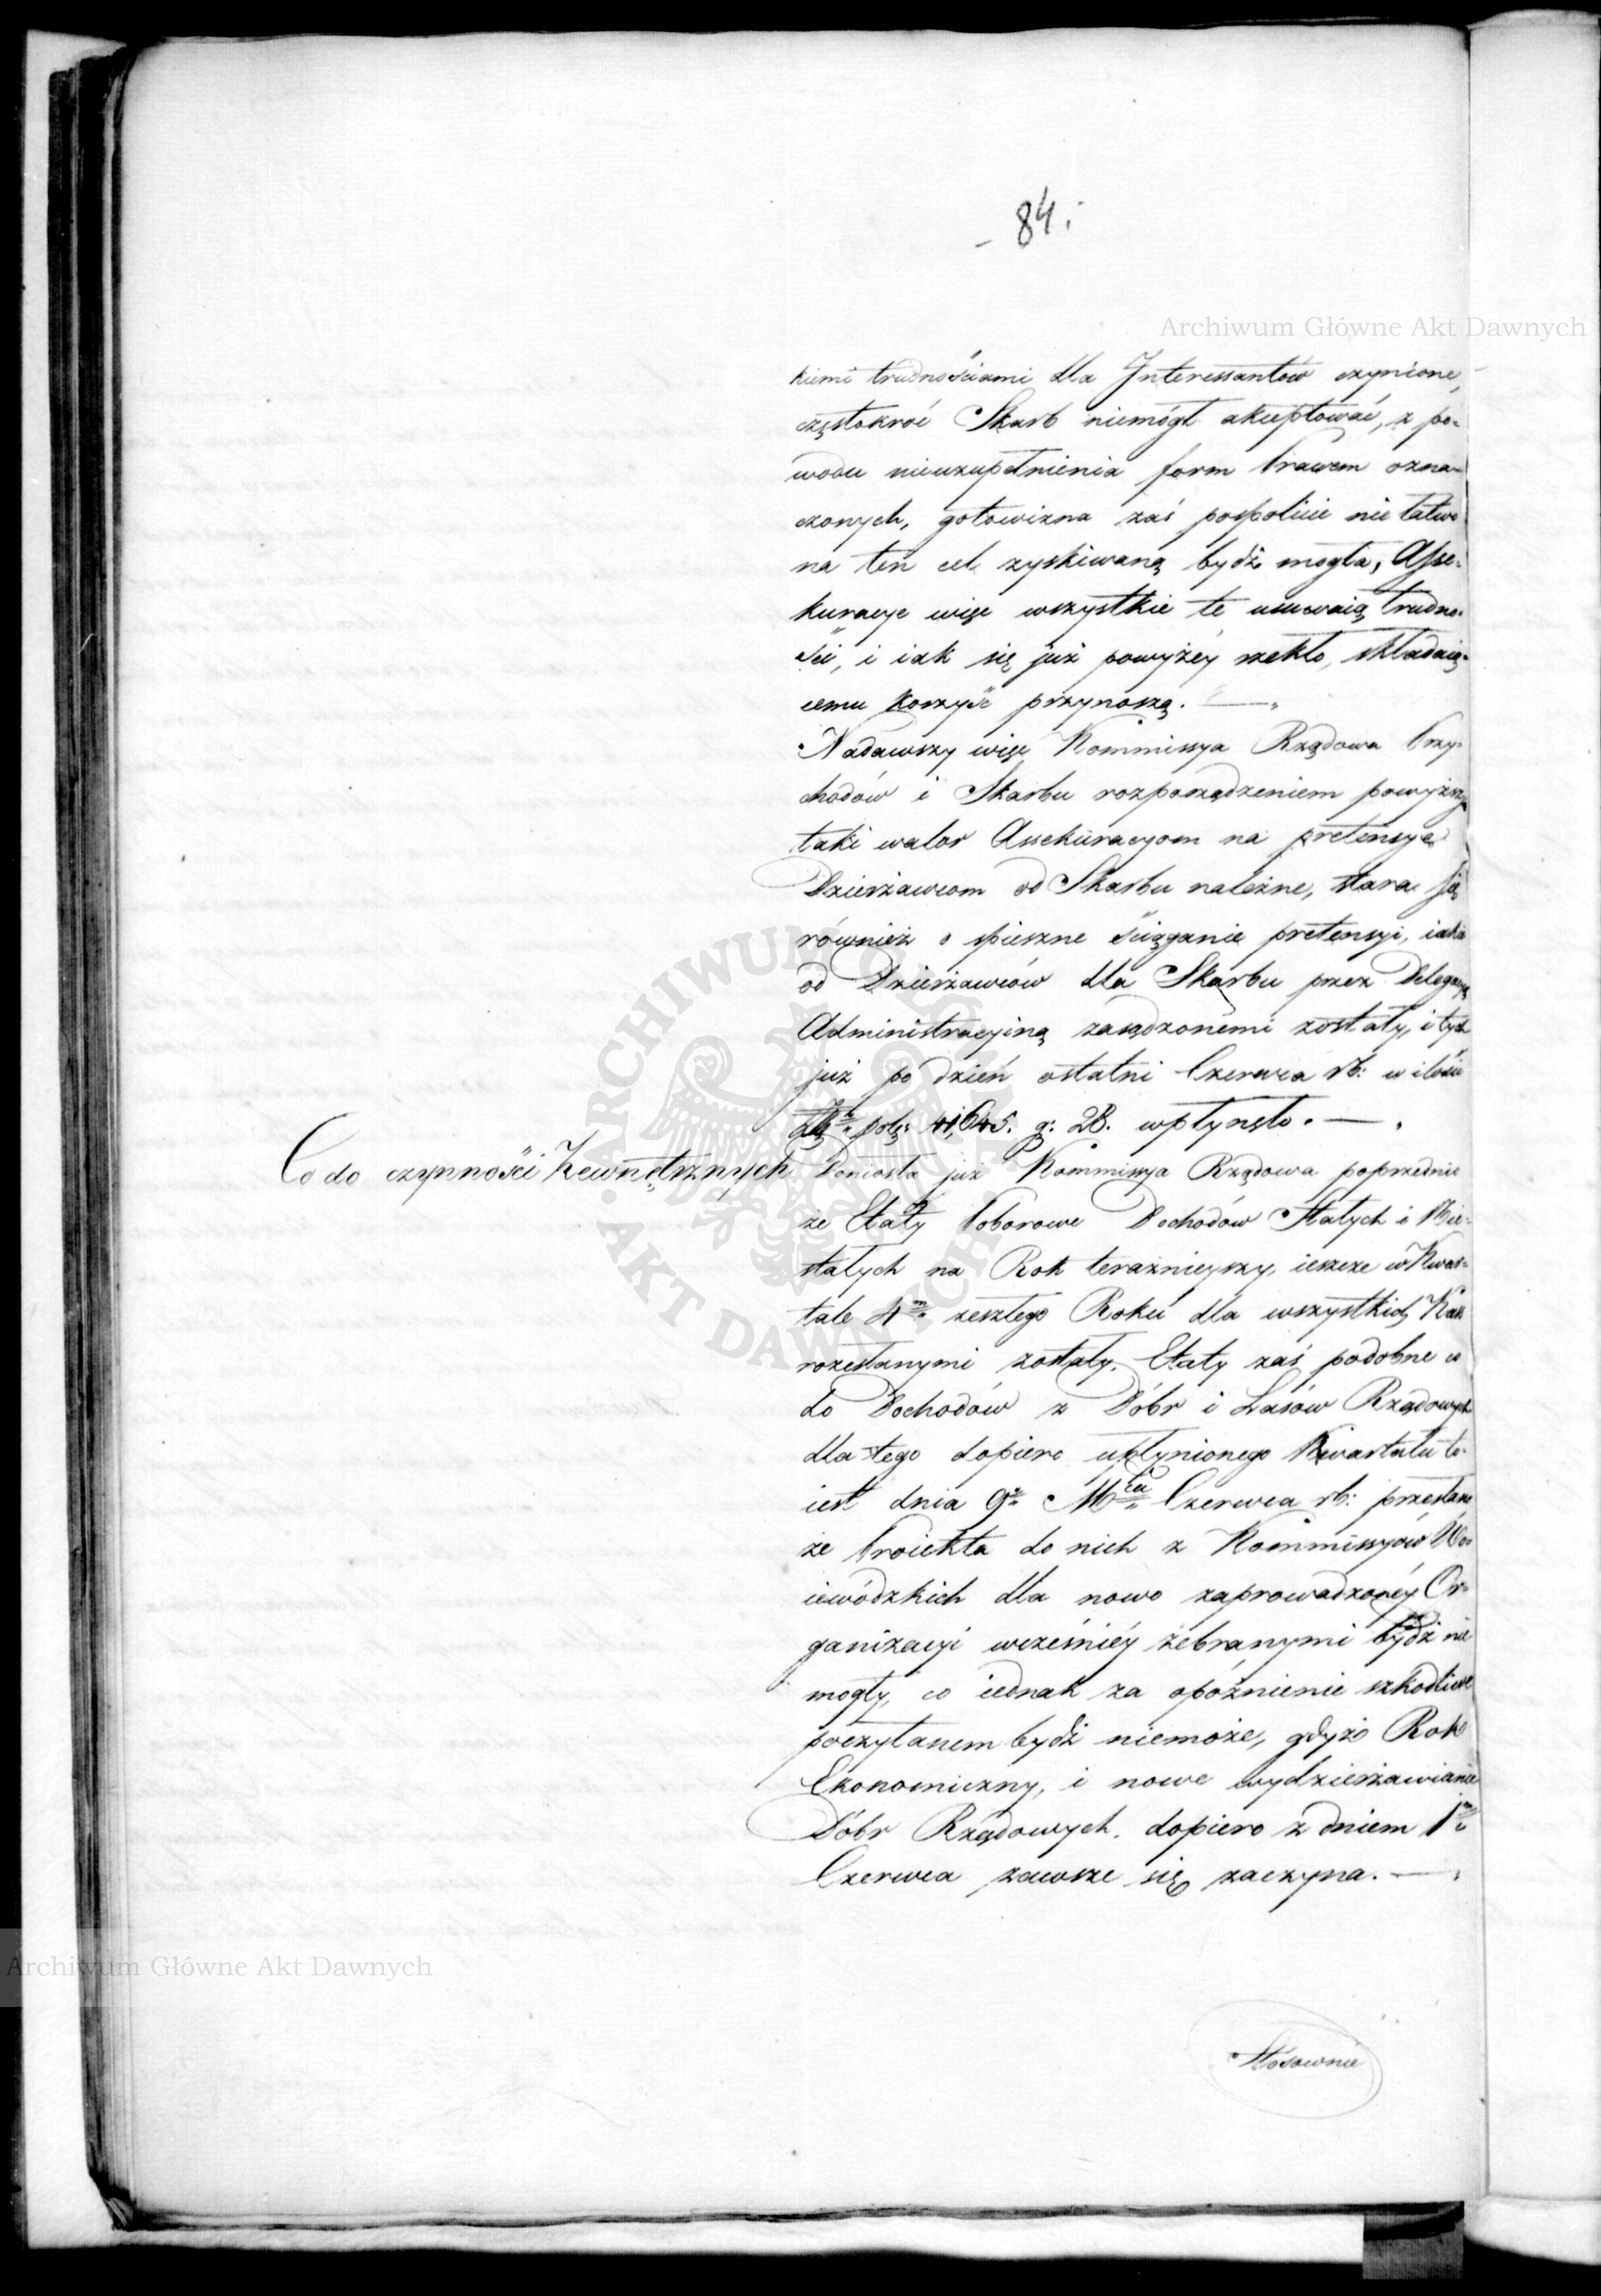 - 84.-
Archiwum Główne Akt Dawnych
kiemi trudnościami dla Interessantów czynione,
częstokroć Skarb niemógł akceptować, z po-
wodu nieuzupełnienia form Prawem ozna-
czonych, gotowizna zaś pospolicie nie łatwo
na ten cel zyskiwaną bydź mogła, Asse-
kuracye więc wszystkie te usuwaią trudno-
ści, i iak się już powyżéy rzekło, składaią-
cemu korzyść przynoszą. —
Nadawszy więc Kommissya Rządowa Przy-
chodów i Skarbu rozporządzeniem powyższym
taki walor Assekuracyom na pretensye
Dzierżawcom od Skarbu należne, stara się
również o spieszne ściąganie pretensyi, iakie
od Dzierżawców dla Skarbu przez Delegacyą
Administracyiną zasądzonemi zostały, i tych
już po dzień ostatni Czerwca rb: w ilości
Złch pols: 41,645. g: 28. wpłynęło. —
Co do czynności Zewnętrznych Doniosła już Kommissya Rządowa poprzednio
że Etaty Poborowe Dochodów Stałych i Nie-
stałych na Rok teraźnieyszy, ieszcze w Kwar-
tale 4m zeszłego Roku dla wszystkich Kass
rozesłanymi zostały. Etaty zaś podobne co
do Dochodów z Dóbr i Lasów Rządowych
dla tego dopiero upłynionego Kwartału to-
iest dnia 9o Mca Czerwca rb: przesłano
że Proiekta do nich z Kommissyów Wo-
iewódzkich dla nowo zaprowadzonéy Or-
ganizacyi wcześniéy zebranymi bydź nie
mogły, co iednak za opóźnienie szkodliwe
poczytanem bydź niemoże, gdyż Rok
Ekonomiczny, i nowe wydzierżawianie
Dóbr Rządowych, dopiero z dniem 1m
Czerwca zawsze się zaczyna. —
Archiwum Główne Akt Dawnych
Stosownie
ARCHIWUM GŁÓWNE AKT DAWNYCH